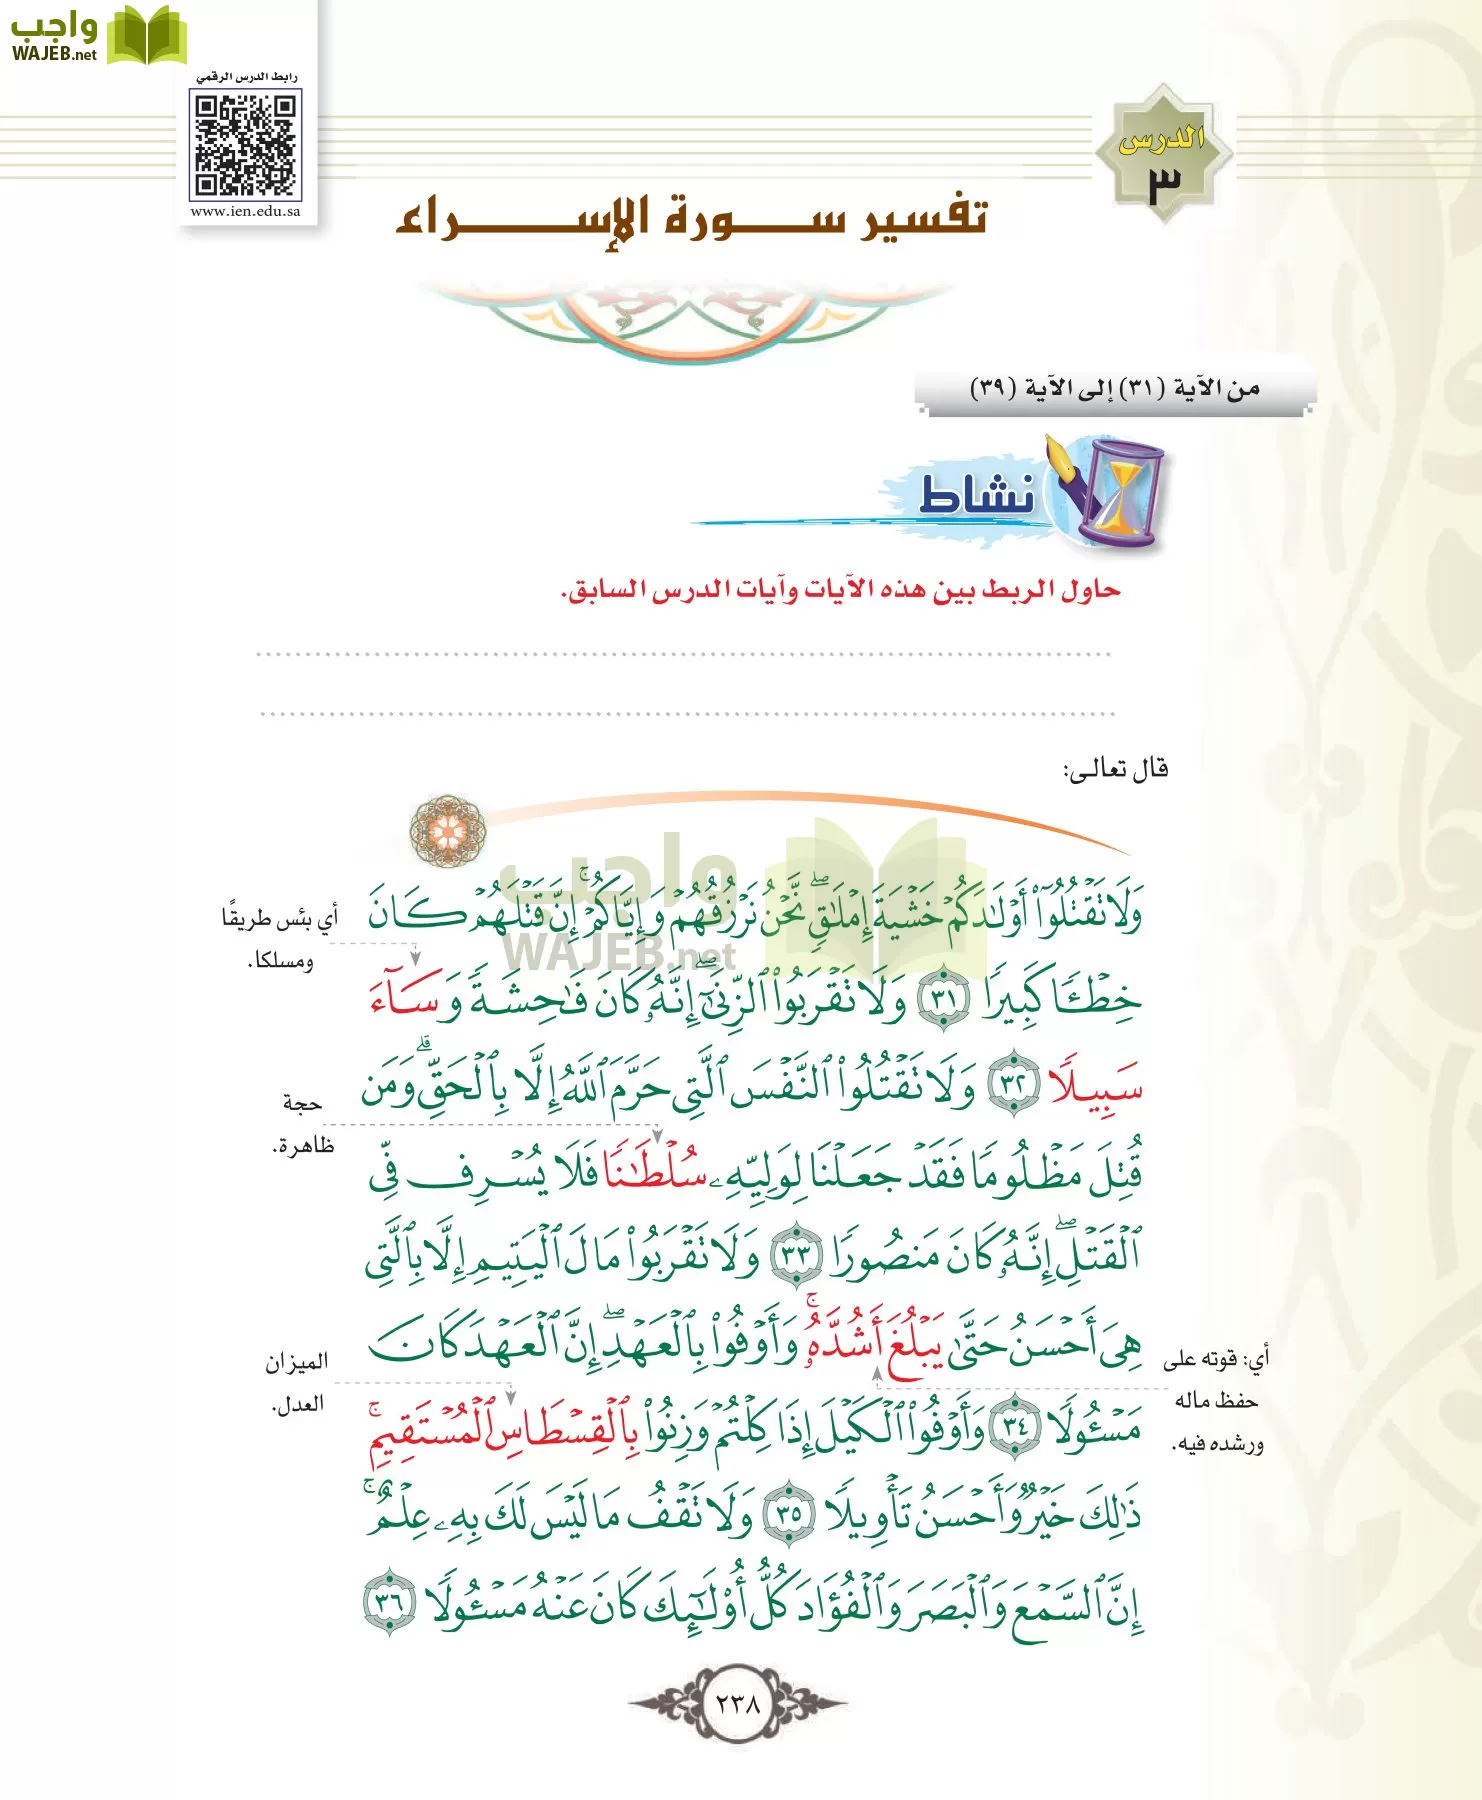 واجب
WAJEB.net
رابط الدرس الرقمي
www.ien.edu.sa
الدرس
٣
تفسير سورة الإسراء
من الآية (٣١) إلى الآية (٣٩)
نشاط
حاول الربط بين هذه الآيات وآيات الدرس السابق.
قال تعالى:
وَلَا تَقْتُلُوٓا۟ أَوْلَـٰدَكُمْ خَشْيَةَ إِمْلَـٰقٍۖ نَّحْنُ نَرْزُقُهُمْ وَإِيَّاكُمْۚ إِنَّ قَتْلَهُمْ كَانَ
خِطْـًٔا كَبِيرًا ٣١ وَلَا تَقْرَبُوا۟ ٱلزِّنَىٰٓۖ إِنَّهُۥ كَانَ فَـٰحِشَةً وَسَآءَ
سَبِيلًا ٣٢ وَلَا تَقْتُلُوا۟ ٱلنَّفْسَ ٱلَّتِى حَرَّمَ ٱللَّهُ إِلَّا بِٱلْحَقِّۗ وَمَن
قُتِلَ مَظْلُومًا فَقَدْ جَعَلْنَا لِوَلِيِّهِۦ سُلْطَـٰنًا فَلَا يُسْرِف فِّى
ٱلْقَتْلِۖ إِنَّهُۥ كَانَ مَنصُورًا ٣٣ وَلَا تَقْرَبُوا۟ مَالَ ٱلْيَتِيمِ إِلَّا بِٱلَّتِى
هِىَ أَحْسَنُ حَتَّىٰ يَبْلُغَ أَشُدَّهُۥۚ وَأَوْفُوا۟ بِٱلْعَهْدِۖ إِنَّ ٱلْعَهْدَ كَانَ
مَسْـُٔولًا ٣٤ وَأَوْفُوا۟ ٱلْكَيْلَ إِذَا كِلْتُمْ وَزِنُوا۟ بِٱلْقِسْطَاسِ ٱلْمُسْتَقِيمِۚ
ذَٰلِكَ خَيْرٌ وَأَحْسَنُ تَأْوِيلًا ٣٥ وَلَا تَقْفُ مَا لَيْسَ لَكَ بِهِۦ عِلْمٌۚ
إِنَّ ٱلسَّمْعَ وَٱلْبَصَرَ وَٱلْفُؤَادَ كُلُّ أُو۟لَـٰٓئِكَ كَانَ عَنْهُ مَسْـُٔولًا ٣٦
أي بئس طريقًا
ومسلكا.
حجة
ظاهرة.
أي: قوته على
حفظ ماله
ورشده فيه.
الميزان
العدل.
واجب
WAJEB.net
٢٣٨